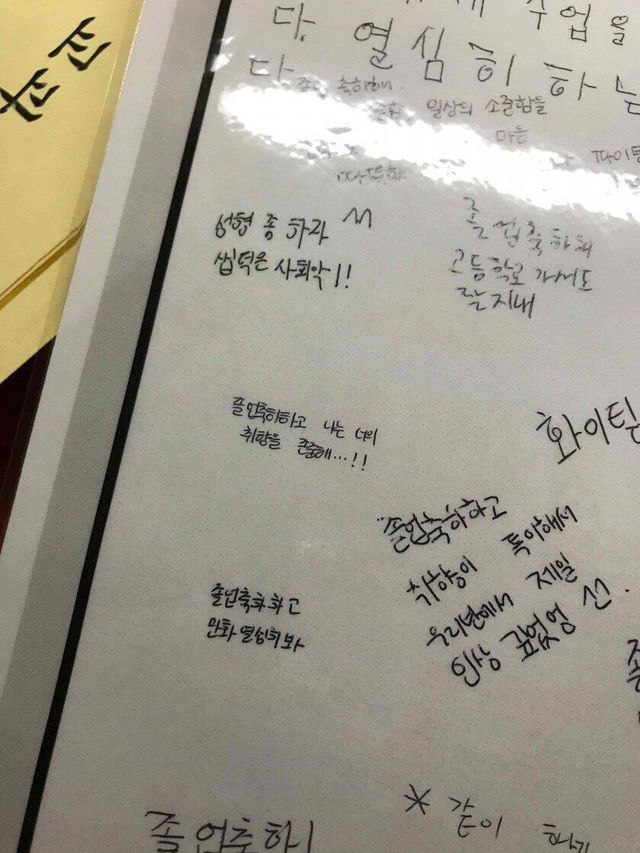 수업을
다. 열심히 하는
다
축하해.
일상의 소중함을
마음
파이팅
성형 좀 하라
씹덕은 사회악!!
졸업축하해
고등학교 가서도
잘지내
졸업축하하고 나는 너의
취향을 존중해...!!
화이팅
졸업축하하고
취향이 독이해서
우리반에서 제일
인상 깊었엉
졸업축하하고
만화 열심히봐
졸
졸업축하
* 같이